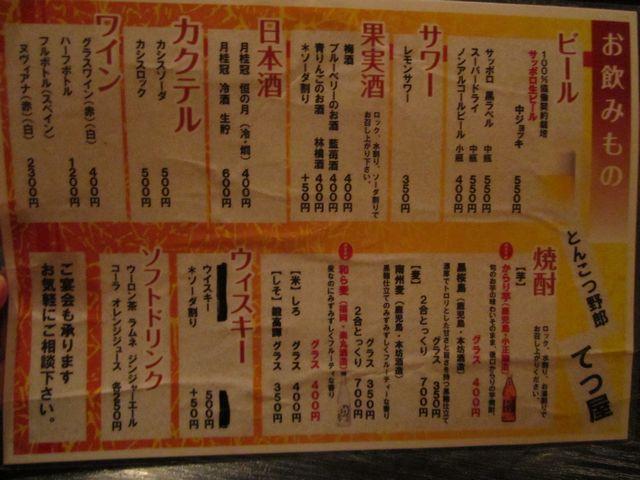 お飲みもの
とんこつ野郎 てつ屋
ビール
100%協働契約栽培
サッポロ生ビール
中ジョッキ 550円
サッポロ 黒ラベル 中瓶 550円
スーパードライ 中瓶 550円
ノンアルコールビール 小瓶 400円
サワー
レモンサワー 350円
果実酒
ロック、水割り、ソーダ割りで
お召し上がり下さい。
梅酒 400円
ブルーベリーのお酒 藍苺酒 400円
青りんごのお酒 林檎酒 400円
*ソーダ割り +50円
日本酒
月桂冠 恒の月(冷・燗) 400円
月桂冠 冷酒 生貯 600円
カクテル
カシスソーダ 500円
カシスロック 500円
ワイン
グラスワイン(赤)(白) 400円
ハーフボトル 1200円
フルボトル(スペイン)
ヌヴィアナ(赤)(白) 2300円
焼酎
ロック、水割り、お湯割りで
お召し上がりください。
【芋】
からり芋(鹿児島・小正醸造)
グラス 400円
黒桜島(鹿児島・本坊酒造)
濃厚でトロリとした甘さと旨さを持つ黒麹仕立て
グラス 350円
2合とっくり 700円
【麦】
南州麦(鹿児島・本坊酒造)
黒麹仕立てのみずみずしくフルーティーな香り
グラス 350円
2合とっくり 700円
和ら麦(福岡・楽丸酒造)
麦なのにみずみずしくフルーティな香り
グラス 400円
【米】しろ グラス 400円
【しそ】鍛高譚 グラス 350円
ウィスキー
ウイスキー 500円
*ソーダ割り +50円
ソフトドリンク
ウーロン茶 ラムネ ジンジャーエール
コーラ オレンジジュース 各250円
ご宴会も承ります
お気軽にご相談下さい。